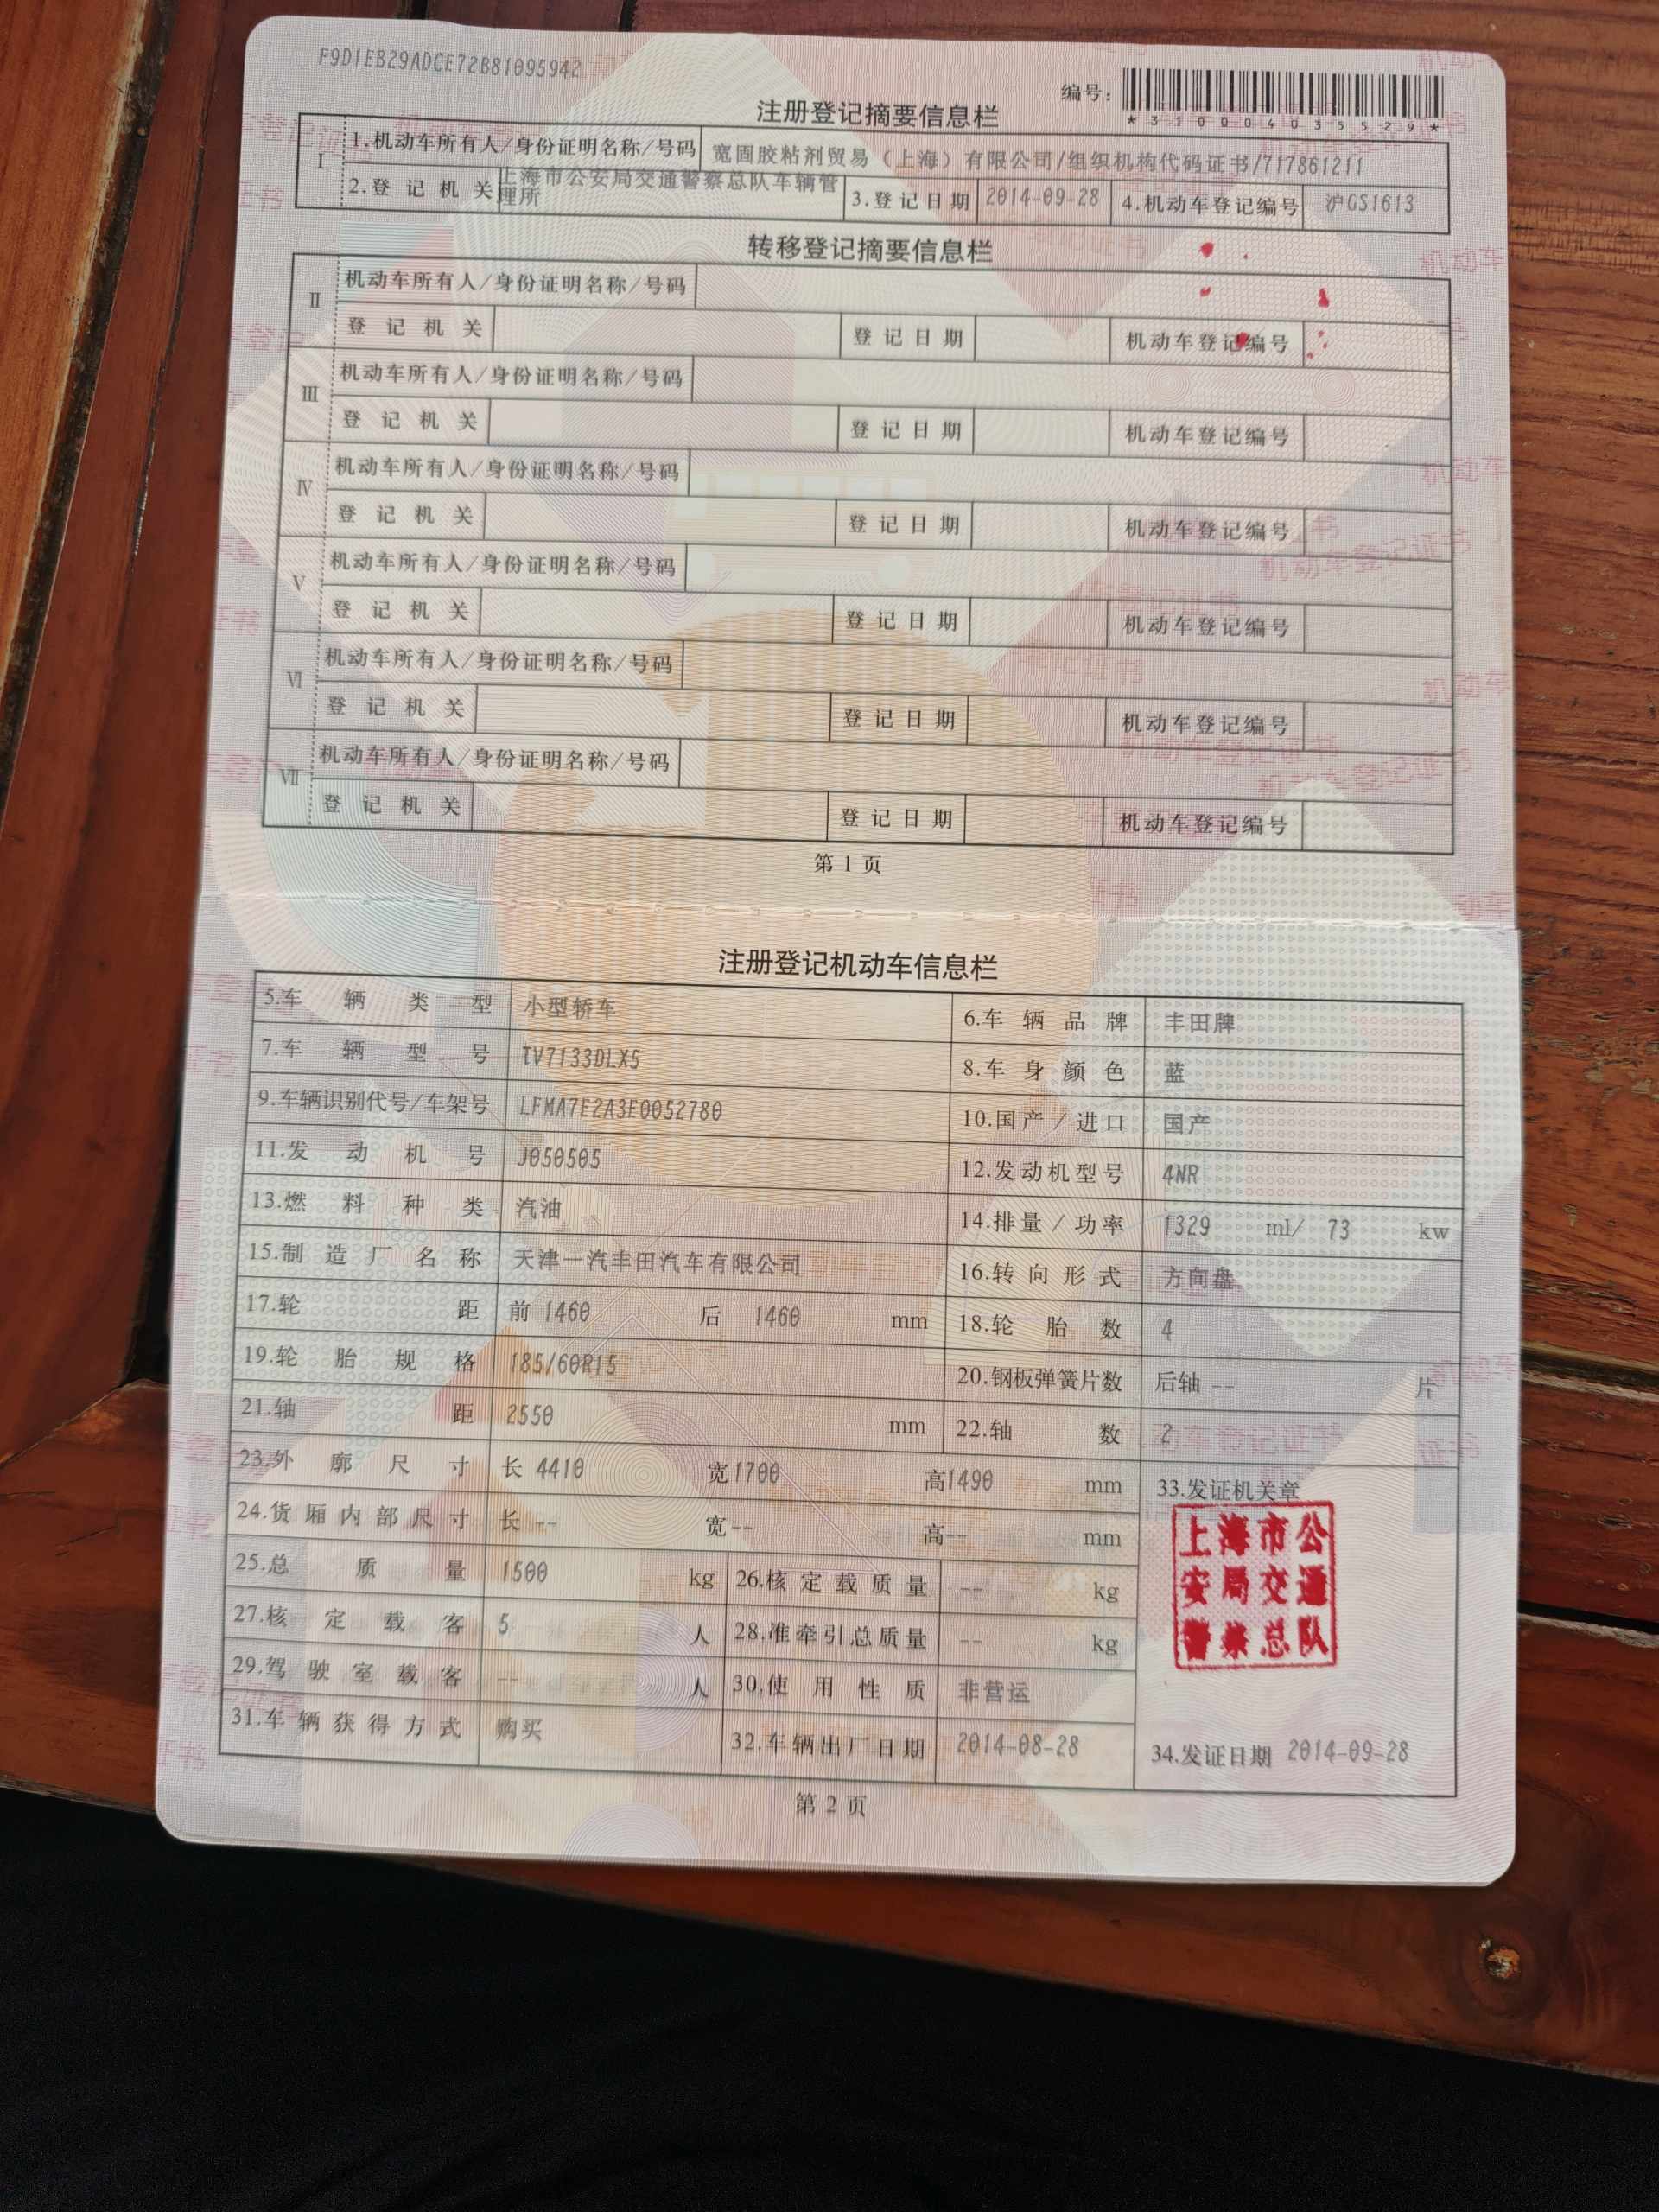 F9D1EB29ADCE72B81095942
编号：
*310004035529*
注册登记摘要信息栏
Ⅰ 1.机动车所有人/身份证明名称/号码 宽固胶粘剂贸易（上海）有限公司/组织机构代码证书/717861211
2.登记机关 上海市公安局交通警察总队车辆管理所 3.登记日期 2014-09-28 4.机动车登记编号 沪GS1613
转移登记摘要信息栏
Ⅱ 机动车所有人/身份证明名称/号码
登记机关 登记日期 机动车登记编号
Ⅲ 机动车所有人/身份证明名称/号码
登记机关 登记日期 机动车登记编号
Ⅳ 机动车所有人/身份证明名称/号码
登记机关 登记日期 机动车登记编号
Ⅴ 机动车所有人/身份证明名称/号码
登记机关 登记日期 机动车登记编号
Ⅵ 机动车所有人/身份证明名称/号码
登记机关 登记日期 机动车登记编号
Ⅶ 机动车所有人/身份证明名称/号码
登记机关 登记日期 机动车登记编号
第 1 页
注册登记机动车信息栏
5.车辆类型 小型轿车 6.车辆品牌 丰田牌
7.车辆型号 TV7133DLX5 8.车身颜色 蓝
9.车辆识别代号/车架号 LFMA7E2A3E0052780 10.国产/进口 国产
11.发动机号 J050505 12.发动机型号 4NR
13.燃料种类 汽油 14.排量/功率 1329 ml/ 73 kw
15.制造厂名称 天津一汽丰田汽车有限公司 16.转向形式 方向盘
17.轮距 前 1460 后 1460 mm 18.轮胎数 4
19.轮胎规格 185/60R15 20.钢板弹簧片数 后轴 -- 片
21.轴距 2550 mm 22.轴数 2
23.外廓尺寸 长 4410 宽 1700 高 1490 mm 33.发证机关章
24.货厢内部尺寸 长 -- 宽 -- 高 -- mm
上海市公
安局交通
警察总队
25.总质量 1500 kg 26.核定载质量 -- kg
27.核定载客 5 人 28.准牵引总质量 -- kg
29.驾驶室载客 -- 人 30.使用性质 非营运
31.车辆获得方式 购买 32.车辆出厂日期 2014-08-28 34.发证日期 2014-09-28
第 2 页